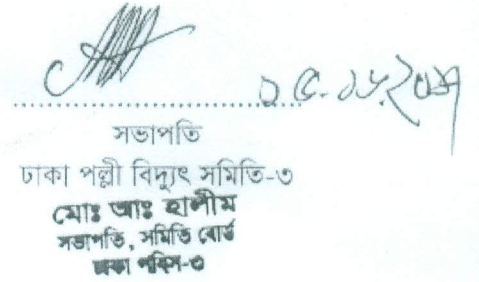 সভাপতি
ঢাকা পল্লী বিদ্যুৎ সমিতি-৩
মোঃ আঃ হালীম
সভাপতি, সমিতি বোর্ড
ঢাকা পবিস-৩